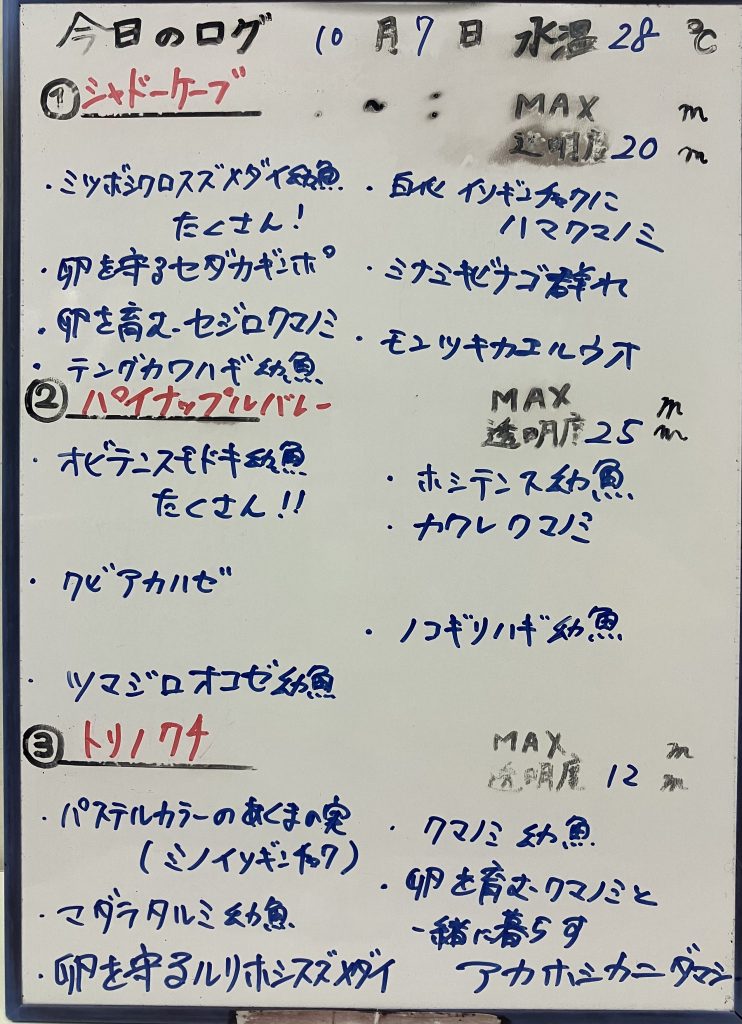 今日のログ 10月7日 水温 28℃
①シャドーケーブ . ~ : MAX m
透明度 20 m
・ミツボシクロスズメダイ幼魚
たくさん!
・卵を守るセダカギンポ
・卵を育むセジロクマノミ
・テングカワハギ幼魚
・白化イソギンチャクに
ハマクマノミ
・ミナミキビナゴ群れ
・モンツキカエルウオ
②パイナップルバレー MAX m
透明度 25 m
・オビテンスモドキ幼魚
たくさん!!
・クビアカハゼ
・ツマジロオコゼ幼魚
・ホシテンス幼魚
・カクレクマノミ
・ノコギリハギ幼魚
③トリノクチ MAX m
透明度 12 m
・パステルカラーのあくまの実
(ミノイソギンチャク)
・マダラタルミ幼魚
・卵を守るルリホシスズメダイ
・クマノミ幼魚
・卵を育むクマノミと
一緒に暮らす
アカホシカニダマシ